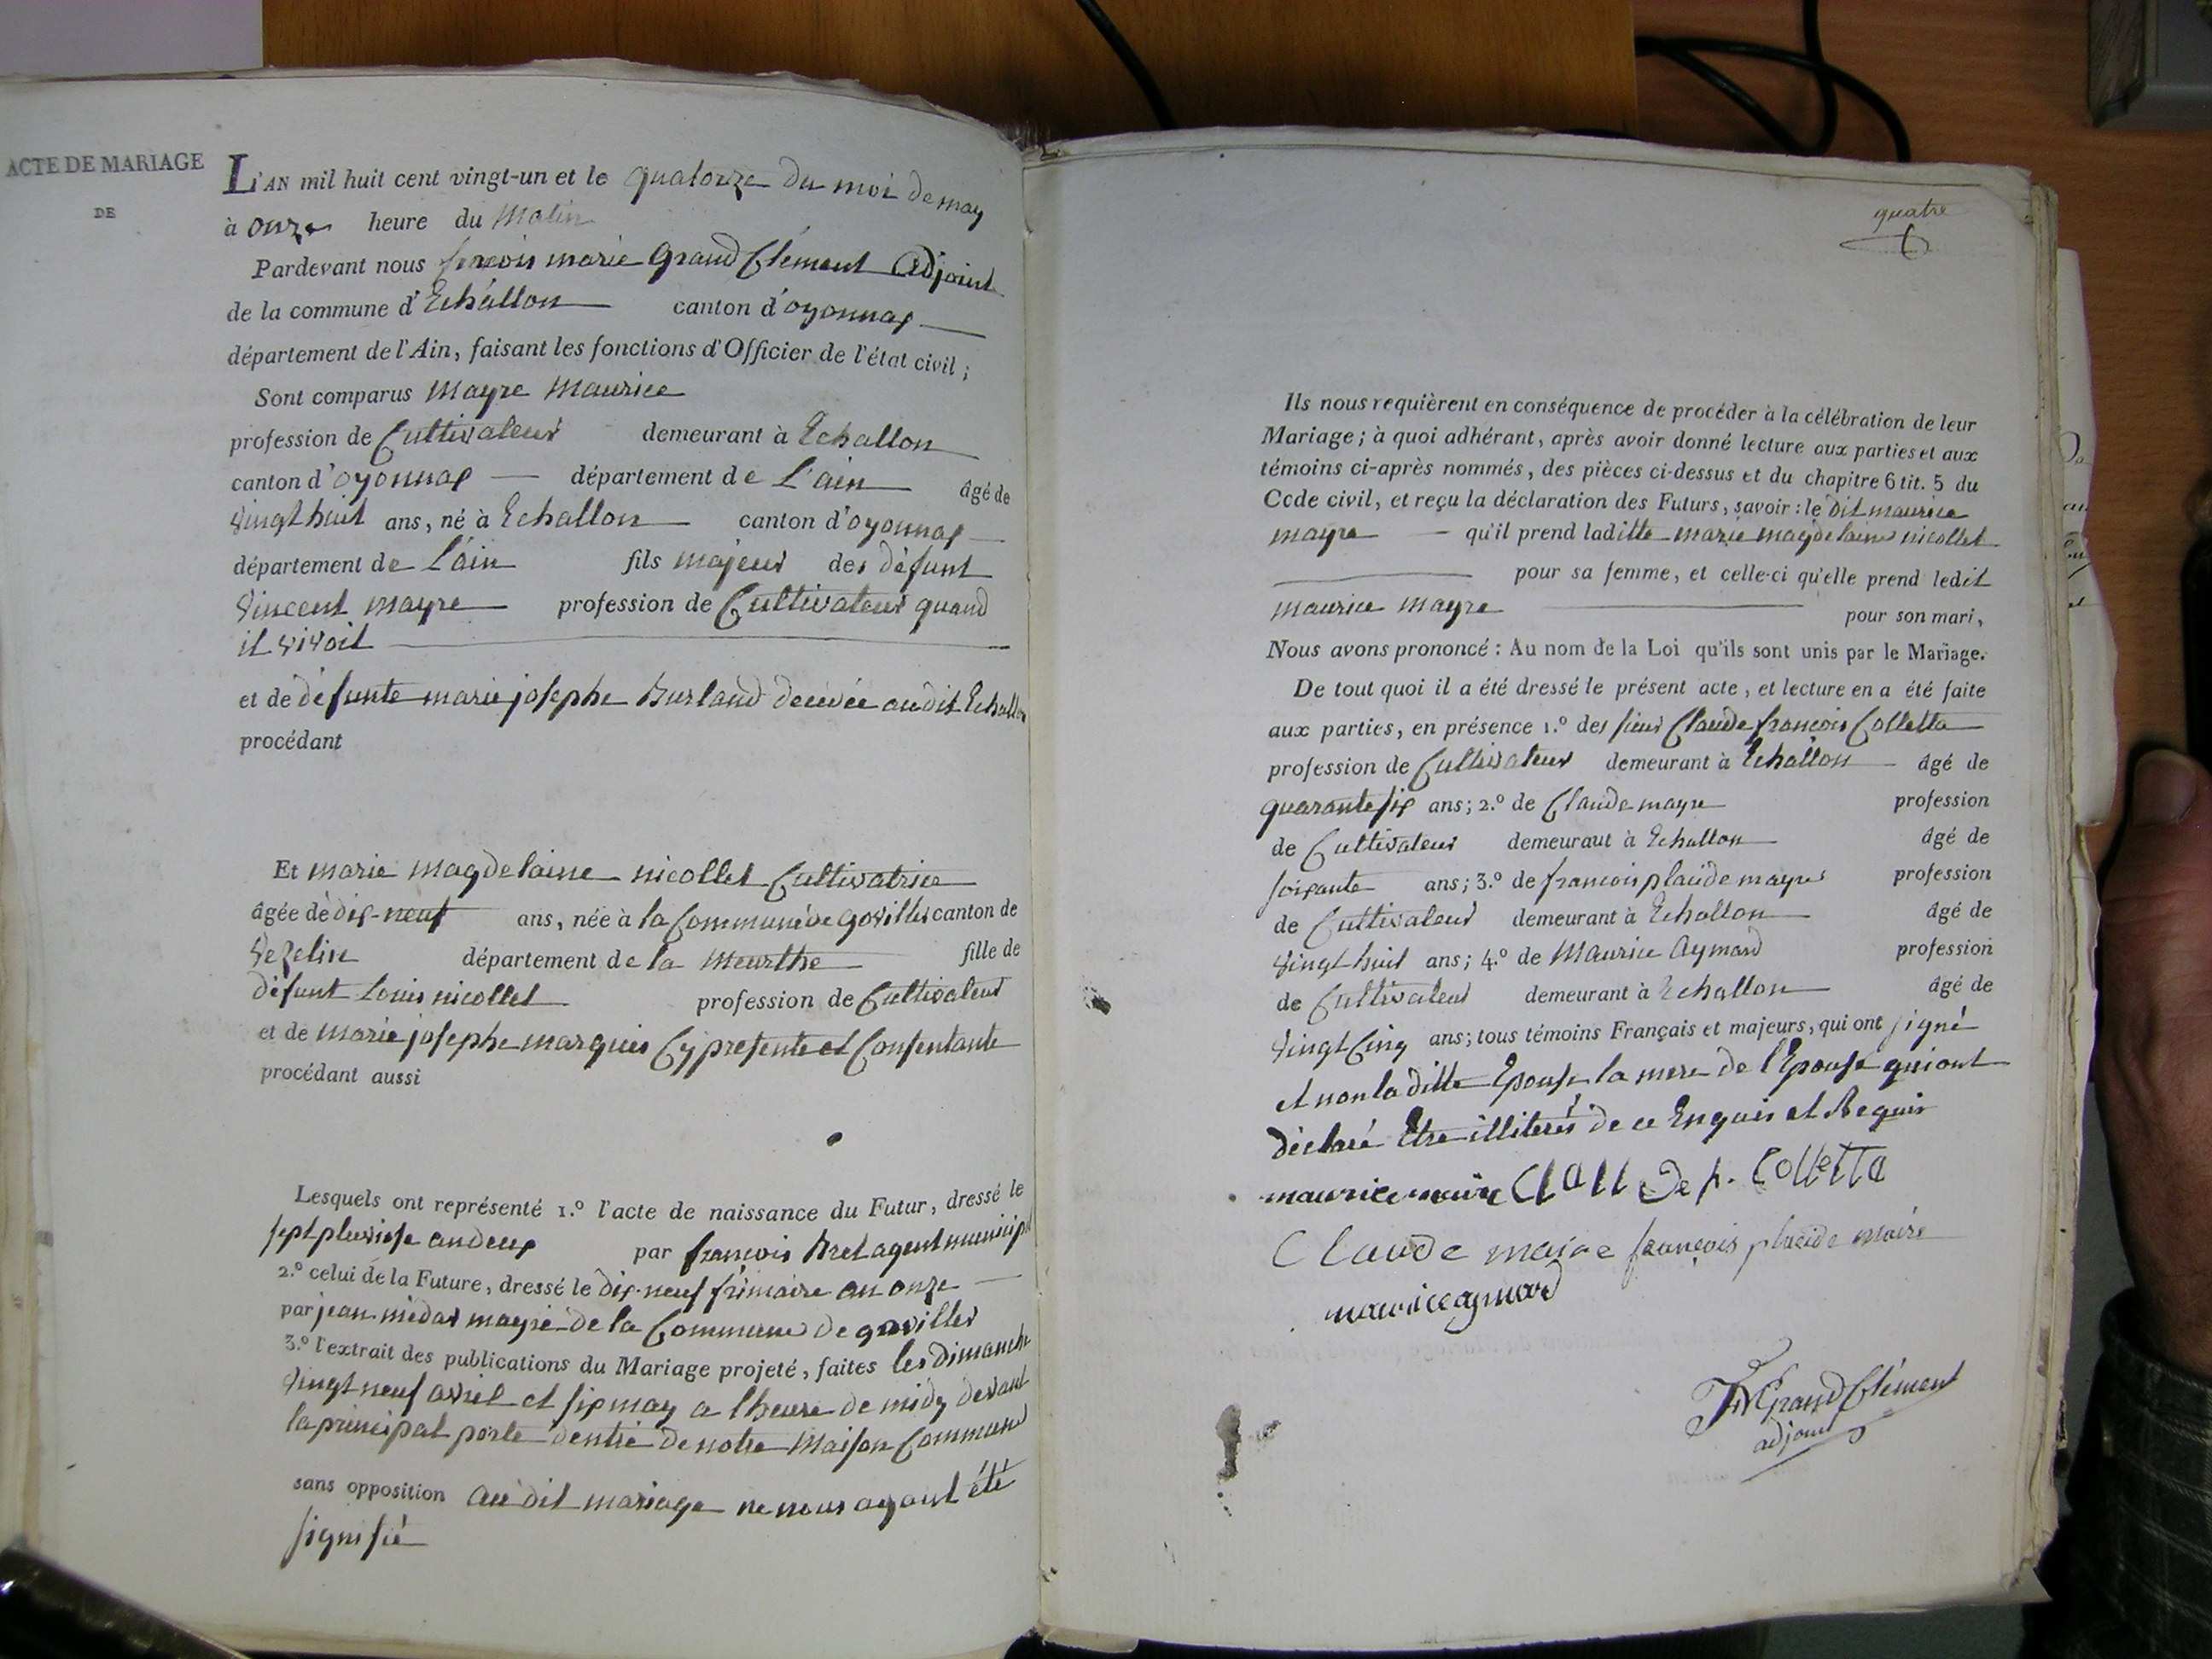 ACTE DE MARIAGE
DE
L'AN mil huit cent vingt-un et le quatorze du moi de may
à onze heure du Matin
Pardevant nous marie Grand Clément Adjoint
de la commune d'Echallon canton d'oyonnax
département de l'Ain, faisant les fonctions d'Officier de l'état civil ;
Sont comparus Mayre Maurice
profession de Cultivateur demeurant à Echallon
canton d'oyonnax département de L'ain âgé de
vingt huit ans, né à Echallon canton d'oyonnax
département de L'ain fils majeur des défunt
Vincent mayre profession de Cultivateur quand
il vivoit
et de défunte marie josephe Burland audit Echallon
procédant
Et marie magdelaine nicollet Cultivatrice
âgée de dix-neuf ans, née à la Commune de goviller canton de
Vezelise département de la Meurthe fille de
défunt Louis nicollet profession de Cultivateur
et de Marie josephe marquis Cy presente et Consentante
procédant aussi
Lesquels ont représenté 1.º l'acte de naissance du Futur, dressé le
sept pluviose an deux par françois Bret agent municipal
2.º celui de la Future, dressé le dix-neuf frimaire an onze
par jean medar mayre de la Commune de goviller
3.º l'extrait des publications du Mariage projeté, faites les dimanche
vingt neuf avril et six may a l'heure de midy devant
la principal porte dentré de notre Maison Commune
sans opposition au dit mariage ne nous ayant été
signifié
quatre
Ils nous requièrent en conséquence de procéder à la célébration de leur
Mariage ; à quoi adhérant, après avoir donné lecture aux parties et aux
témoins ci-après nommés, des pièces ci-dessus et du chapitre 6 tit. 5 du
Code civil, et reçu la déclaration des Futurs, savoir : le dit maurice
mayre qu'il prend laditte marie magdelaine nicollet
pour sa femme, et celle-ci qu'elle prend ledit
maurice mayre pour son mari,
Nous avons prononcé : Au nom de la Loi qu'ils sont unis par le Mariage.
De tout quoi il a été dressé le présent acte, et lecture en a été faite
aux parties, en présence 1.º des sieur Claude françois Colletta
profession de Cultivateur demeurant à Echallon âgé de
quarante six ans ; 2.º de Claude mayre profession
de Cultivateur demeurant à Echallon âgé de
soixante ans ; 3.º de francois mayre profession
de Cultivateur demeurant à Echallon âgé de
vingt huit ans ; 4.º de Maurice Aymard profession
de Cultivateur demeurant à Echallon âgé de
vingt Cinq ans ; tous témoins Français et majeurs, qui ont signé
et non la ditte Epouse la mere de l'Epouse qui ont
déclaré Etre illiterés de ce Enquis et Requis
maurice maire Claude f. Colletta
Claude maire françois placide maire
maurice aymard
Grand Clément
adjoint